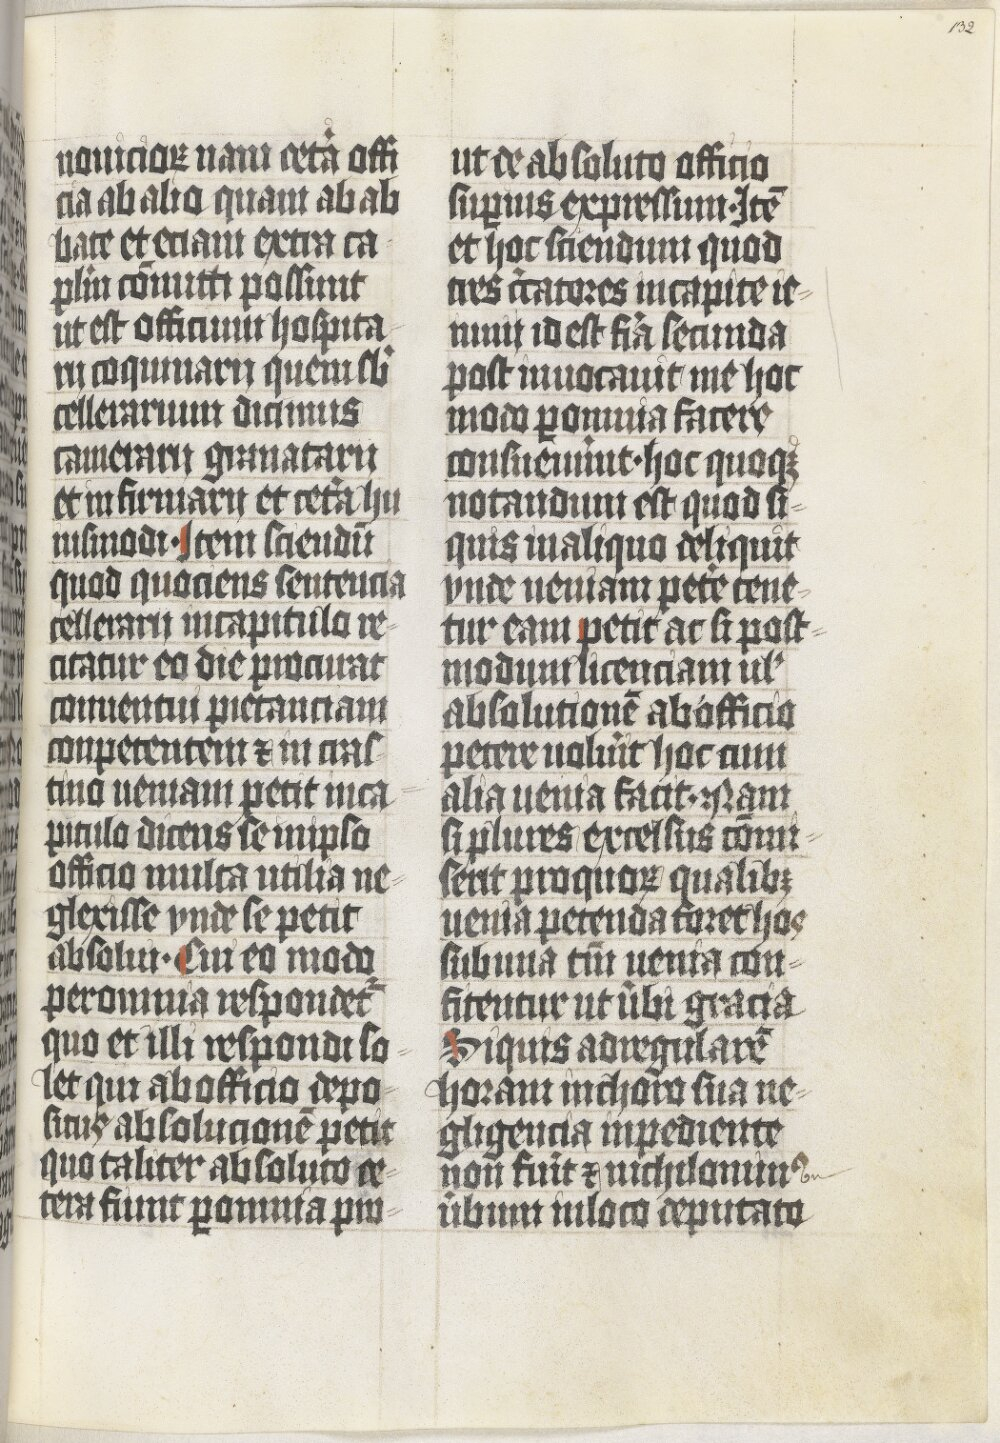 132
nouicioꝝ nam cet̃a offi
cia ab alio quam ab ab
bate et eciam extra ca
pl̃m cõmitti possunt
ut est officium hospita⸗
rij coquinarij quem sb̾
cellerarium dicimus
camerarij granatarij
et infirmarij et cet̃a hu
iusmodi · Item sciendũ
quod quociens sentencia
cellerarij incapitulo re⸗
citatur eo die procurat
conuentui pietanciam
conpetentem ⁊ in cras
tino ueniam petit inca⸗
pitulo dicens se inipso
officio multa utilia ne⸗
glexisse vnde se petit
absolui · Cui eo modo
peromnia respondet᷑
quo et illi respondi so⸗
let qui abofficio depo⸗
situs absolucionẽ petit
quo taliter absoluto ce⸗
tera fiunt ꝑomnia pro⸗
ut de absoluto officio
suꝑius expressum · Itẽ
et hoc sciendum quod
tres c̾catores incapite ie⸗
iunij id est fr̃a secunda
post inuocauit me hoc
modo ꝑomnia facere
consueuer̃unt · hoc quoqꝫ
notandum est quod si⸗
quis inaliquo deliquit
vnde ueniam pet̾e tene⸗
tur eam petit ac si post⸗
modum licenciam ul̾
absolutionẽ abofficio
petere uolũit hoc cum
alia uenia facit · Nam
si plures excessus cõmi⸗
serit proquoꝝ qualibꝫ
uenia petenda foret hos
subuna tm̃ uenia con⸗
fitentur ut ũbi gracia
Siquis adregularẽ
horam inchoro sua ne⸗
gligencia inpediente
non fuit̃ ⁊ nichilominꝰ
ũbum inloco deputato